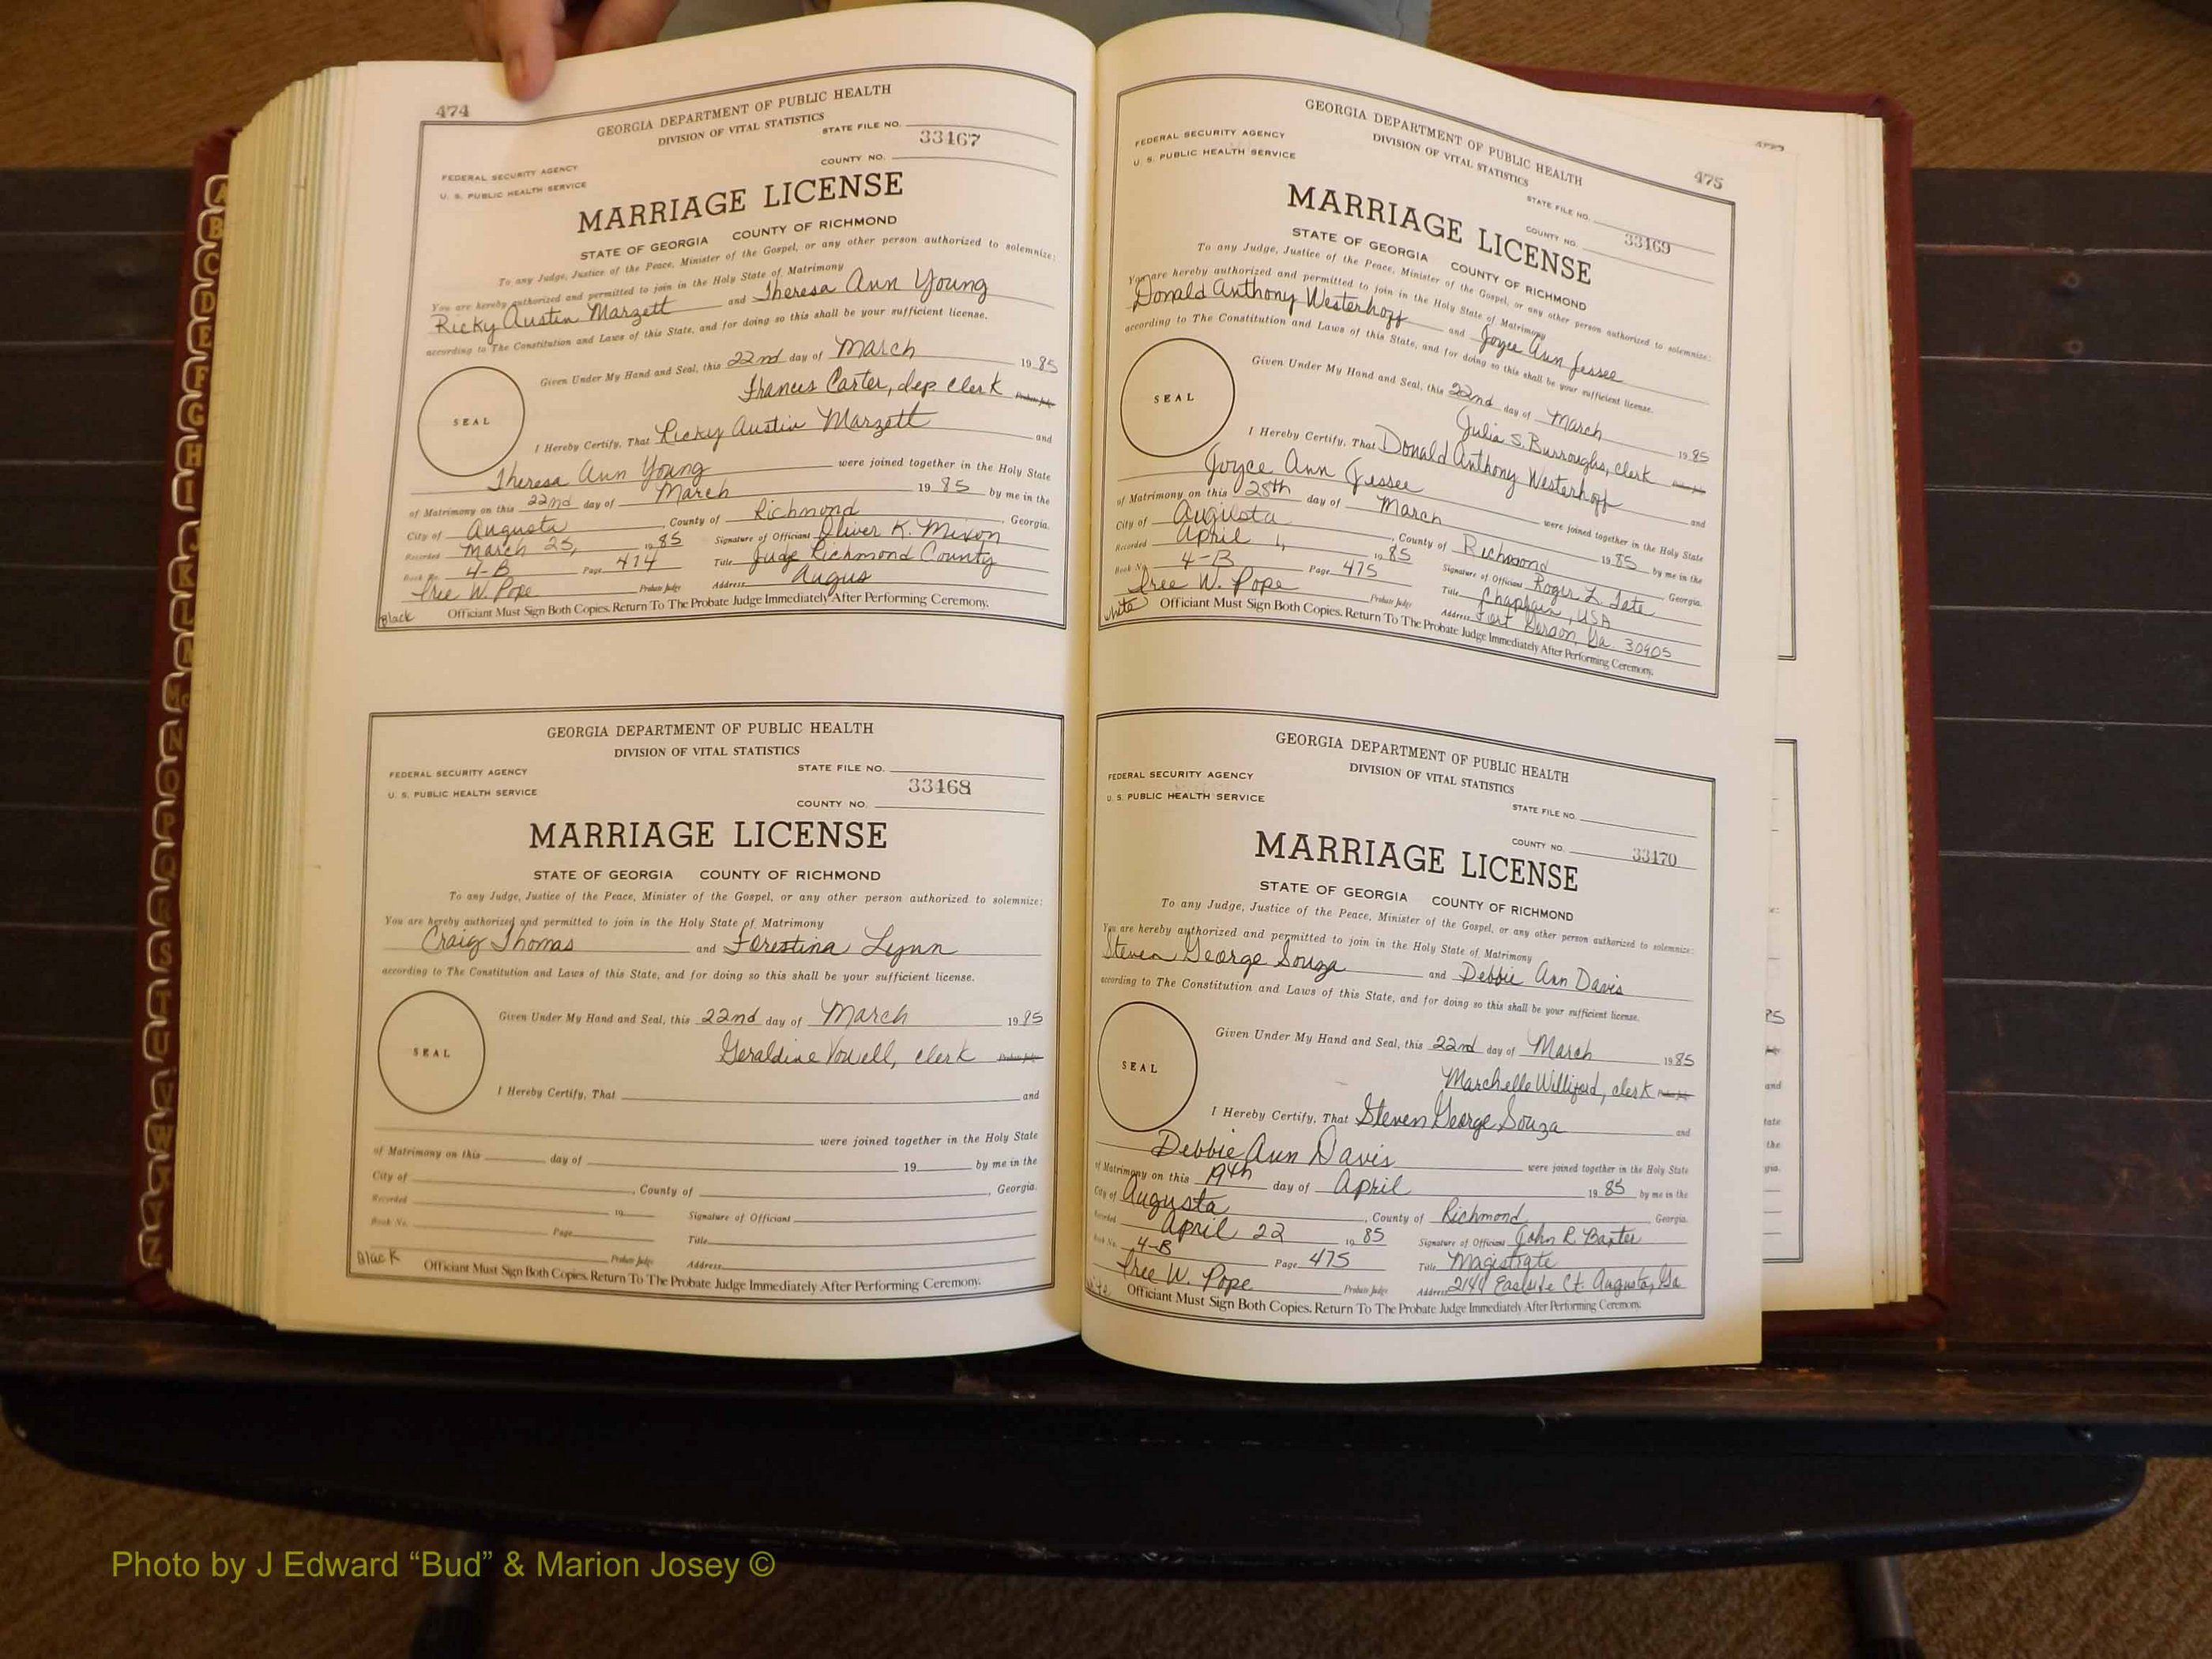 474
GEORGIA DEPARTMENT OF PUBLIC HEALTH
DIVISION OF VITAL STATISTICS
STATE FILE NO.
33467
COUNTY NO.
FEDERAL SECURITY AGENCY
U. S. PUBLIC HEALTH SERVICE
MARRIAGE LICENSE
STATE OF GEORGIA COUNTY OF RICHMOND
To any Judge, Justice of the Peace, Minister of the Gospel, or any other person authorized to solemnize:
You are hereby authorized and permitted to join in the Holy State of Matrimony
Ricky Austin Marzett and Theresa Ann Young
according to The Constitution and Laws of this State, and for doing so this shall be your sufficient license.
SEAL
Given Under My Hand and Seal, this 22nd day of March 1985
Frances Carter, dep. clerk Probate Judge
I Hereby Certify, That Ricky Austin Marzett and
Theresa Ann Young were joined together in the Holy State
of Matrimony on this 22nd day of March 1985 by me in the
City of Augusta, County of Richmond, Georgia.
Recorded March 25, 1985 Signature of Officiant Oliver K. Mixon
Book No. 4-B Page 474 Title Judge Richmond County
Iree W. Pope Probate Judge Address Augus
Black Officiant Must Sign Both Copies. Return To The Probate Judge Immediately After Performing Ceremony.
GEORGIA DEPARTMENT OF PUBLIC HEALTH
DIVISION OF VITAL STATISTICS
STATE FILE NO.
33468
COUNTY NO.
FEDERAL SECURITY AGENCY
U. S. PUBLIC HEALTH SERVICE
MARRIAGE LICENSE
STATE OF GEORGIA COUNTY OF RICHMOND
To any Judge, Justice of the Peace, Minister of the Gospel, or any other person authorized to solemnize:
You are hereby authorized and permitted to join in the Holy State of Matrimony
Craig Thomas and Forestina Lynn
according to The Constitution and Laws of this State, and for doing so this shall be your sufficient license.
SEAL
Given Under My Hand and Seal, this 22nd day of March 1985
Geraldine Vowell, clerk Probate Judge
I Hereby Certify, That and
were joined together in the Holy State
of Matrimony on this day of 19 by me in the
City of , County of , Georgia.
Recorded 19 Signature of Officiant
Book No. Page Title
Probate Judge Address
Black Officiant Must Sign Both Copies. Return To The Probate Judge Immediately After Performing Ceremony.
475
GEORGIA DEPARTMENT OF PUBLIC HEALTH
DIVISION OF VITAL STATISTICS
FEDERAL SECURITY AGENCY
U. S. PUBLIC HEALTH SERVICE
STATE FILE NO.
COUNTY NO. 33469
MARRIAGE LICENSE
STATE OF GEORGIA COUNTY OF RICHMOND
To any Judge, Justice of the Peace, Minister of the Gospel, or any other person authorized to solemnize:
You are hereby authorized and permitted to join in the Holy State of Matrimony
Donald Anthony Westerhoff and Joyce Ann Jessee
according to The Constitution and Laws of this State, and for doing so this shall be your sufficient license.
SEAL
Given Under My Hand and Seal, this 22nd day of March 1985
Julia S. Burroughs, clerk
I Hereby Certify, That Donald Anthony Westerhoff and
Joyce Ann Jessee were joined together in the Holy State
of Matrimony on this 28th day of March 1985 by me in the
City of Augusta, County of Richmond Georgia.
Recorded April 1, 1985 Signature of Officiant Roger L. Tate
Book No. 4-B Page 475 Title Chaplain, USA
Iree W. Pope Probate Judge Address Fort Gordon, Ga. 30905
white Officiant Must Sign Both Copies. Return To The Probate Judge Immediately After Performing Ceremony.
GEORGIA DEPARTMENT OF PUBLIC HEALTH
DIVISION OF VITAL STATISTICS
FEDERAL SECURITY AGENCY
U. S. PUBLIC HEALTH SERVICE
STATE FILE NO.
COUNTY NO. 33470
MARRIAGE LICENSE
STATE OF GEORGIA COUNTY OF RICHMOND
To any Judge, Justice of the Peace, Minister of the Gospel, or any other person authorized to solemnize:
You are hereby authorized and permitted to join in the Holy State of Matrimony
Steven George Souza and Debbie Ann Davis
according to The Constitution and Laws of this State, and for doing so this shall be your sufficient license.
SEAL
Given Under My Hand and Seal, this 22nd day of March 1985
Marchelle Williford, clerk
I Hereby Certify, That Steven George Souza and
Debbie Ann Davis were joined together in the Holy State
of Matrimony on this 19th day of April 1985 by me in the
City of Augusta, County of Richmond Georgia.
Recorded April 22 1985 Signature of Officiant John R Baxter
Book No. 4-B Page 475 Title Magistrate
Iree W. Pope Probate Judge Address Ct. Augusta, Ga
Officiant Must Sign Both Copies. Return To The Probate Judge Immediately After Performing Ceremony.
Photo by J Edward “Bud” & Marion Josey ©